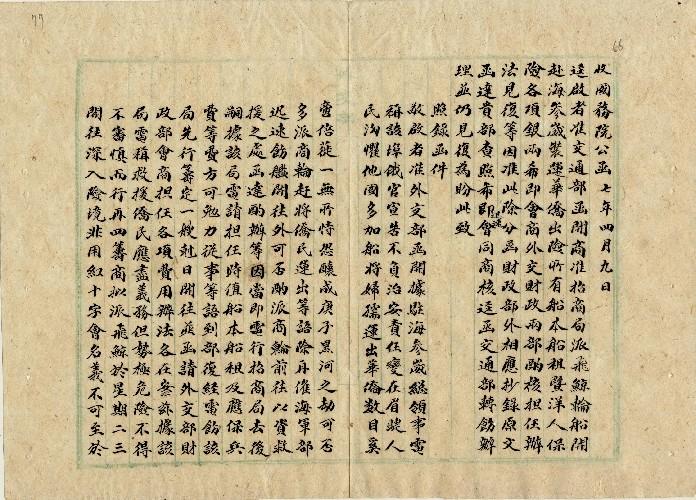 77
66
收國務院公函七年四月九日
逕啟者准交通部函開商准招商局派飛鯨輪船開
赴海參崴裝運華僑出險所有船本船租暨洋人保
險各項銀兩希即會商外交財政兩部酌核担任辦
法見復等因准此除分函財政部外相應抄錄原文
函達貴部查照希即會同商核逕函交通部轉飭辦
理並仍見復為盼此致
照錄函件
敬啟者准外交部函開據駐海參崴總領事電
稱該埠俄官宣告不負治安責任變在眉睫人
民洶懼他國多加船將婦孺運出華僑數目奚
啻倍蓰一無所恃恐釀成庚子黑河之劫可否
多派商輪赴將僑民運出等語除再催海軍部
迅速飭艦開往外可否酌派商輪前往以資救
援之處函達酌辦等因當即電行招商局去後
嗣據該局電請担任時值船本船租及應保兵
費等費方可勉力從事等語到部復經電飭該
局先行籌定一艘剋日開往並函請外交部財
政部會商担任各項費用辦法各在案茲據該
局電稱救援僑民應盡義務但勢極危險不得
不審慎而行再四籌商擬派飛鯨於星期二三
開往深入險境非用紅十字會名義不可至於